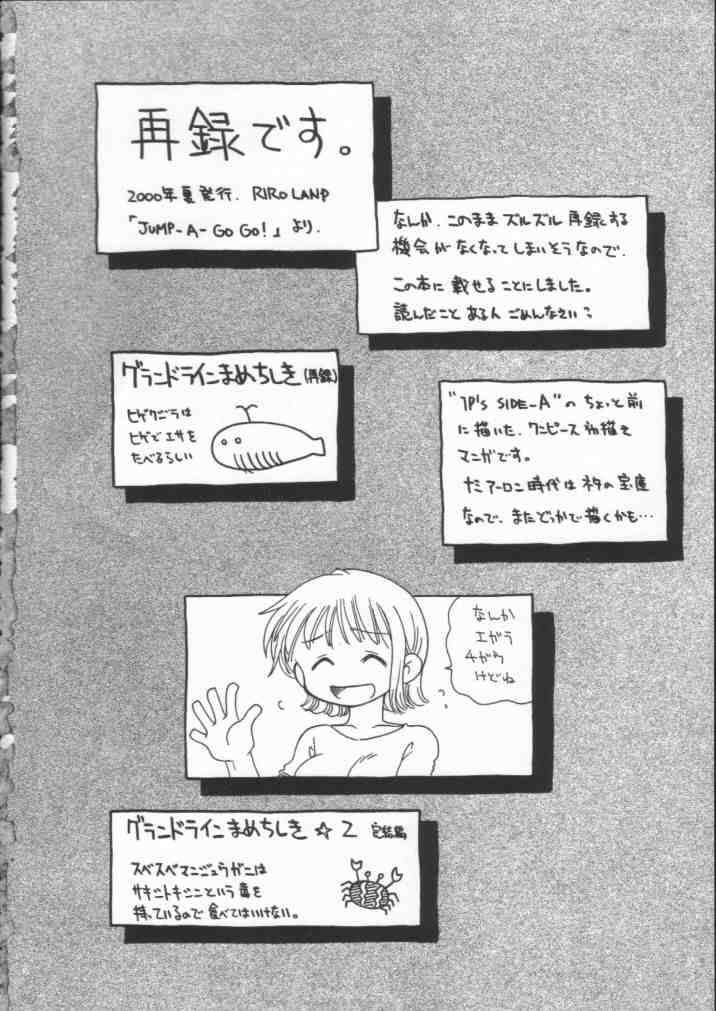 再録です。
2000年夏発行. RIRO LAND
「JUMP-A-GO GO!」より.
なんか、このままズルズル再録する
機会がなくなってしまいそうなので、
この本に載せることにしました。
読んだことある人ごめんなさい？
グランドラインまめちしき(再録)
ヒゲクジラは
ヒゲでエサを
たべるらしい
"7P's SIDE-A"のちょっと前
に描いた、ワンピース初描き
マンガです。
ナミアーロン時代はネタの宝庫
なので、またどっかで描くかも…
なんか
エガラ
チガウ
けどね
グランドラインまめちしき☆2 完結編
スベスベマンジュウガニは
サキシトキシンという毒を
持っているので食べてはいけない。